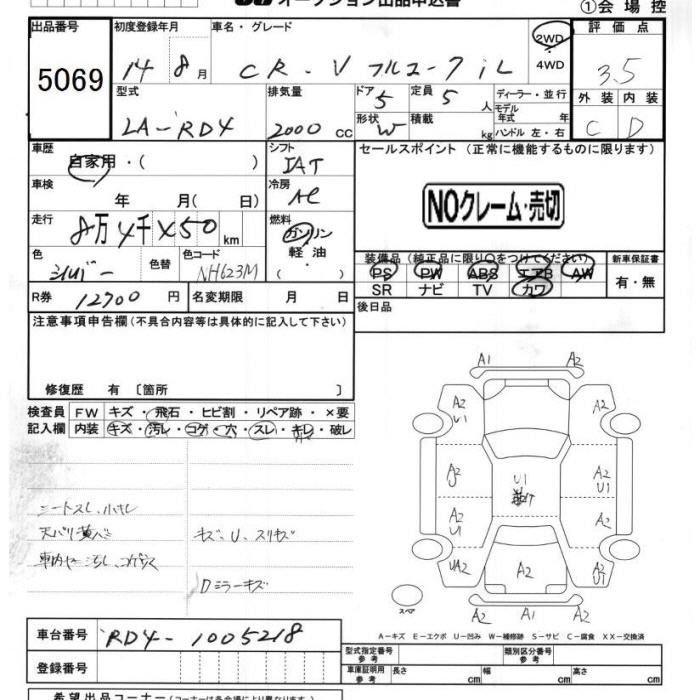 オークション出品申込書
①会場控
出品番号 初度登録年月 車名・グレード 2WD 評価点
5069 14年 8月 CR-V フルマーク iL 4WD 3.5
型式 排気量 ドア 5 定員 5人 ディーラー・並行 外装 内装
LA-RD4 2000 CC 形状 W 積載 kg モデル年式 年 ハンドル 左・右 C D
車歴 シフト セールスポイント (正常に機能するものに限ります)
自家用・( ) IAT
車検 冷房
年 月( 日) AC NOクレーム・売切
走行 燃料
8万4千×50km ガソリン
軽油 装備品(純正品に限り○をつけてください) 新車保証書
色 色替 色コード ( ) PS PW ABS エアB AW 有・無
シルバー NH623M SR ナビ TV カワ
R券 12700円 名変期限 月 日 後日品
注意事項申告欄(不具合内容等は具体的に記入して下さい)
修復歴 有 〔箇所 〕
検査員 FW キズ・飛石・ヒビ割・リペア跡・×要
記入欄 内装 キズ・汚レ・コゲ・穴・スレ・キレ・破レ
シートスレ、小キレ
天バリ黄バミ キズ、U、スリキズ
Dミラーキズ
A1 A2
A2 U1 A2
A2 U1 A2 U1
A2 U1 A2
UA2 A2 A2 U1
スペア A2 A1 A2
A-キズ E-エクボ U-凹み W-補修跡 S-サビ C-腐食 XX-交換済
車台番号 RD4-1005218
型式指定番号 参考 類別区分番号 参考
登録番号 車庫証明用 参考 長さ cm 幅 cm 高さ cm
希望出品コーナー(コーナーは各会場により異なります)